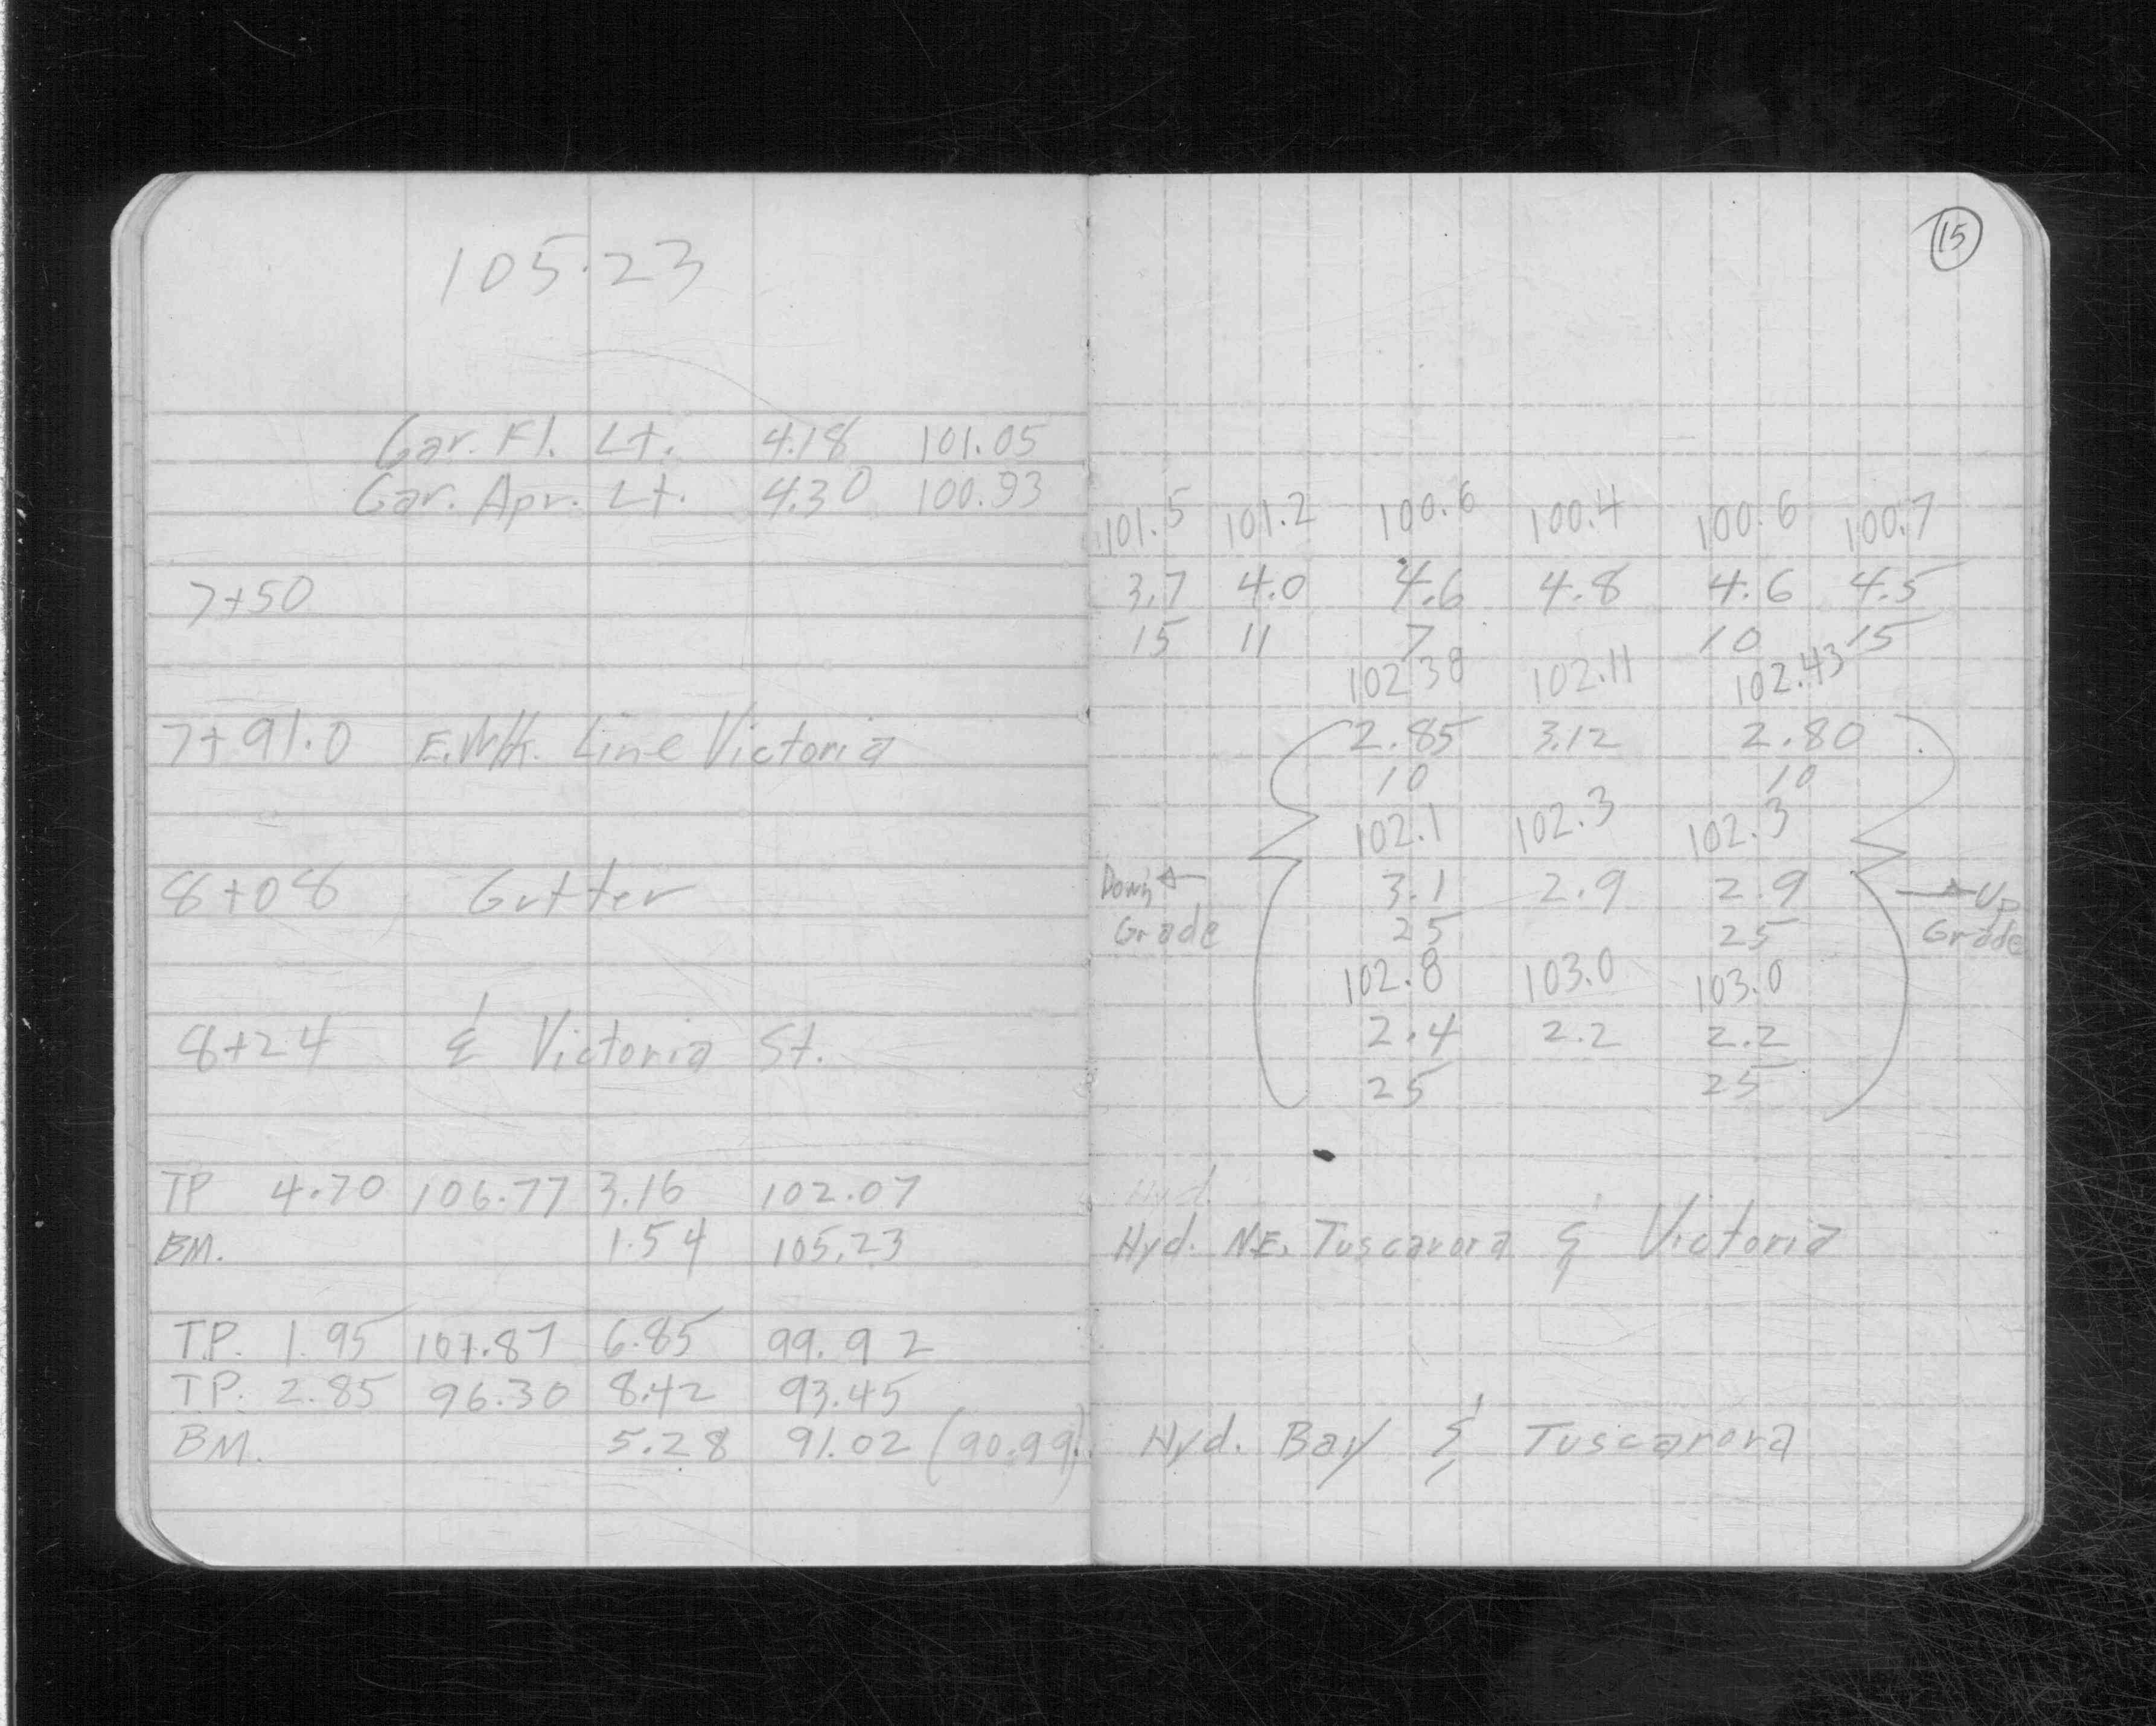 105.23
Gar. Fl. Lt. 4.18 101.05
Gar. Apr. Lt. 4.30 100.93
7+50
7+91.0 E. Wlk. Line Victoria
8+08 Gutter
8+24 & Victoria St.
TP 4.70 106.77 3.16 102.07
BM. 1.54 105.23
T.P. 1.95 101.87 6.85 99.92
T.P. 2.85 96.30 8.42 93.45
BM. 5.28 91.02 (90.99)
15
101.5 101.2 100.6 100.4 100.6 100.7
3.7 4.0 4.6 4.8 4.6 4.5
15 11 7 10 15
102.38 102.11 102.43
2.85 3.12 2.80
10 10
102.1 102.3 102.3
Down 3.1 2.9 2.9 Up
Grade 25 25 Grade
102.8 103.0 103.0
2.4 2.2 2.2
25 25
Hyd.
Hyd. N.E. Tuscarora & Victoria
Hyd. Bay & Tuscarora